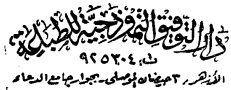 دار التوفيق النموذجية للطباعة
ت: ٩٢٥٣٠٤
الأزهر ٣ حيضان الموصلى بجوار جامع الدعاء